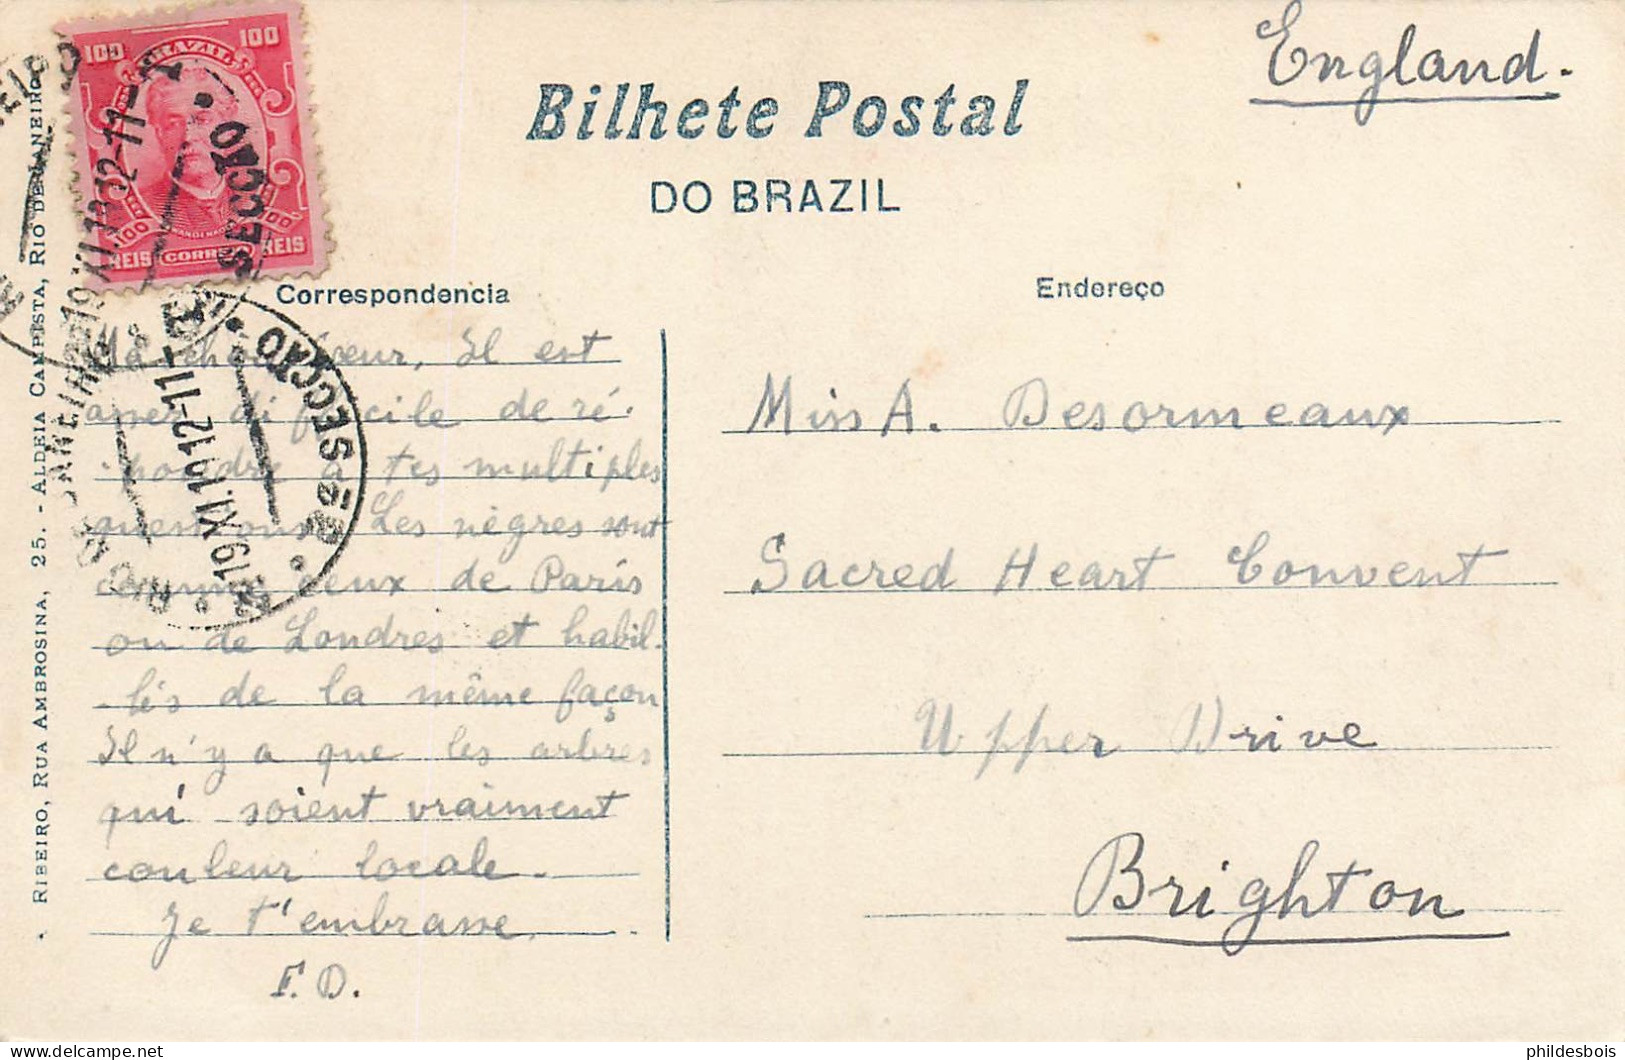 England.
Bilhete Postal
DO BRAZIL
100 BRAZIL 100
100 100
REIS CORREIO REIS
2ª SECCÃO
19 XI.1912-11-T
RIO DE JANEIRO
Correspondencia
Endereço
Ma chère sœur, Il est
assez difficile de ré-
pondre à tes multiples
questions. Les nègres sont
comme ceux de Paris
ou de Londres et habil-
lés de la même façon
Il n'y a que les arbres
qui soient vraiment
couleur locale.
Je t'embrasse,
F. D.
Miss A. Desormeaux
Sacred Heart Convent
Upper Drive
Brighton
RIBEIRO, RUA AMBROSINA, 25. - ALDEIA CAMPISTA, RIO DE JANEIRO
phildesbois